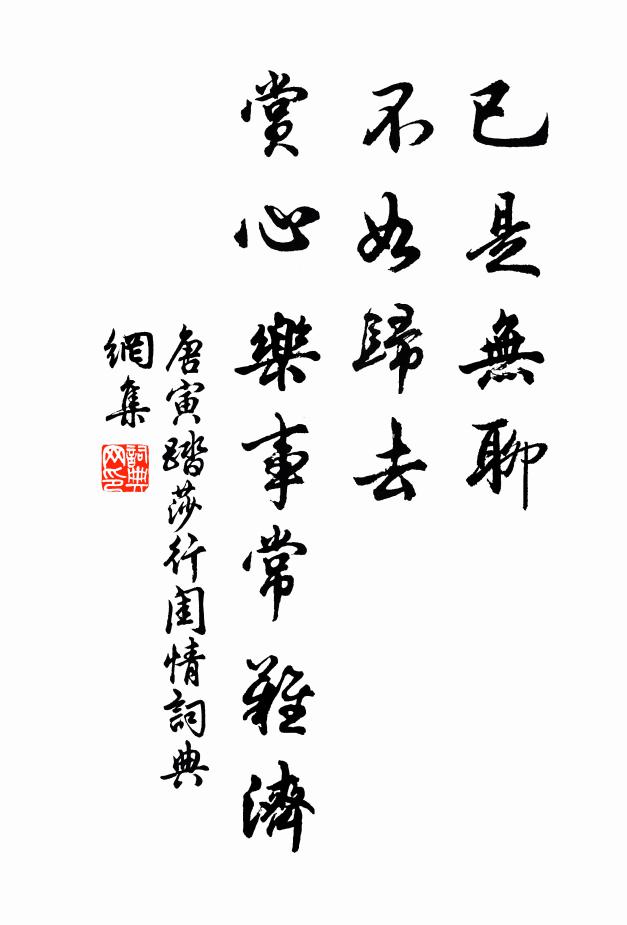 已是無聊
不如歸去
賞心樂事常難濟
唐寅踏莎行閨情詞典
網集
詞典網印